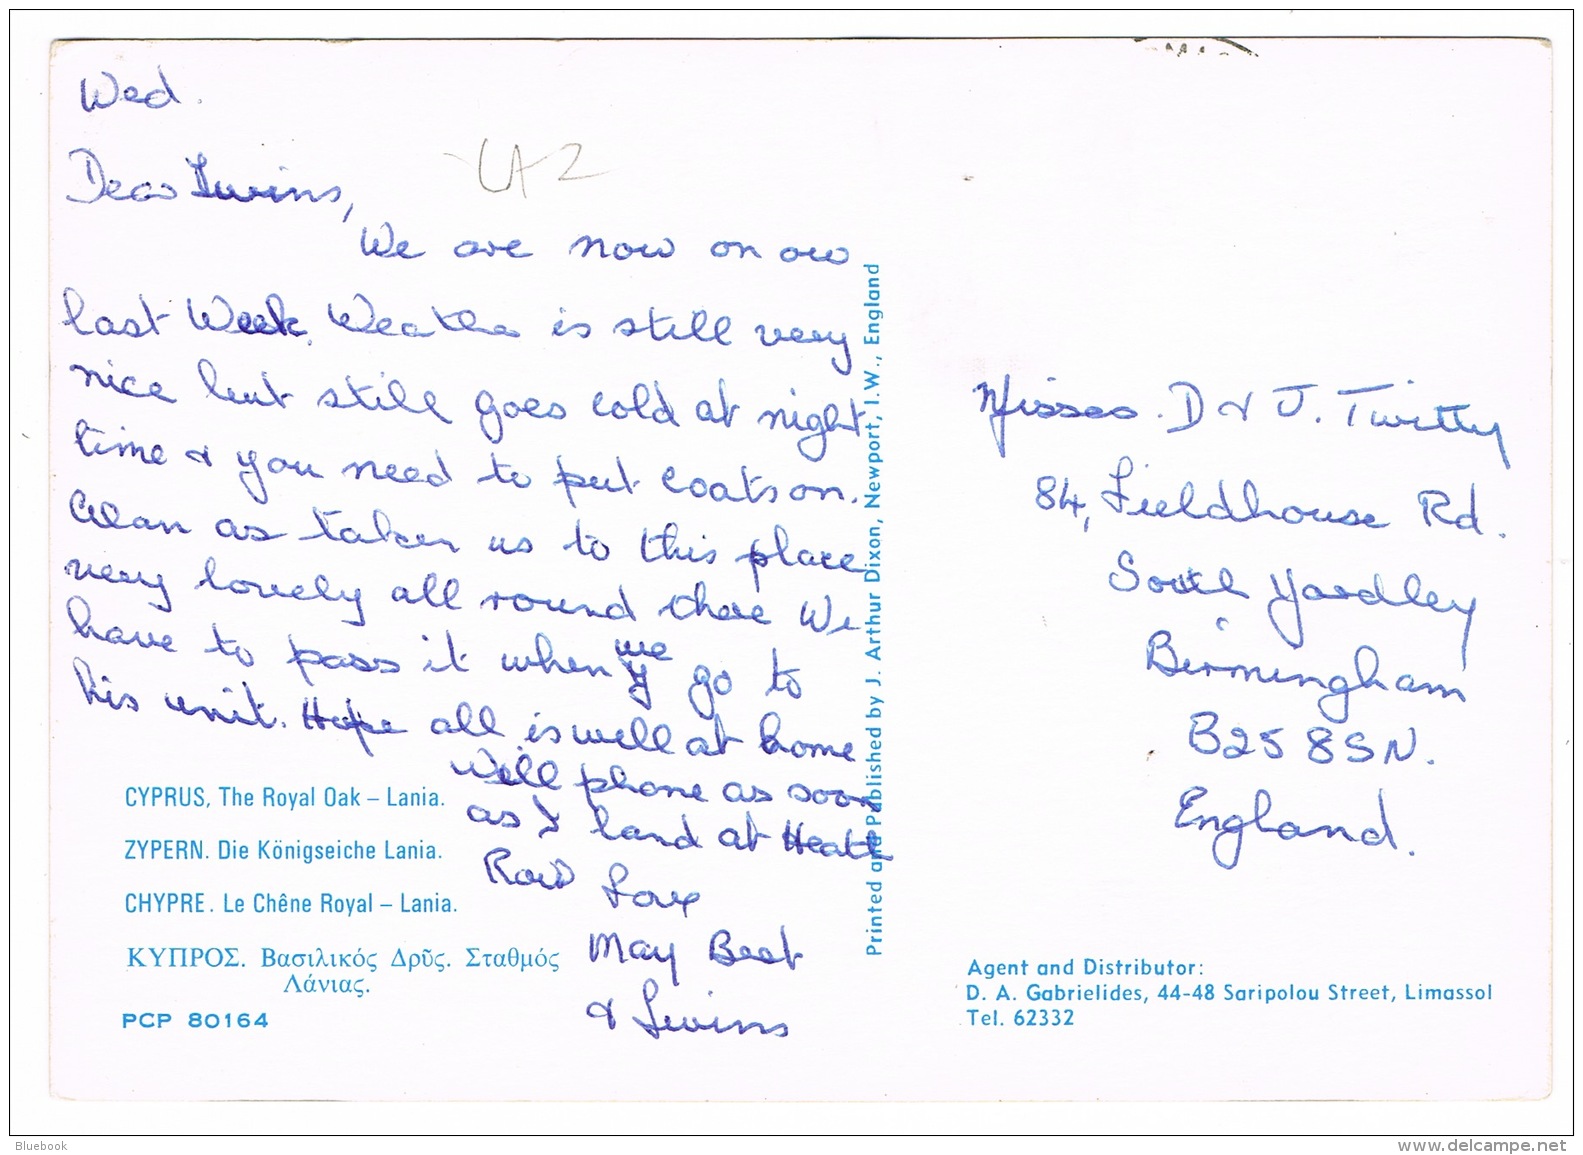 Wed.
Dear Twins,
We are now on our
last Week. Weather is still very
nice but still goes cold at night
time & you need to put coats on.
Alan as taken us to this place
very lovely all round there We
have to pass it when we go to
his unit. Hope all is well at home
Will phone as soon
as I land at Heath
Row Love
May Bert
& Twins
CYPRUS, The Royal Oak – Lania.
ZYPERN. Die Königseiche Lania.
CHYPRE. Le Chêne Royal – Lania.
ΚΥΠΡΟΣ. Βασιλικός Δρῦς. Σταθμός
Λάνιας.
PCP 80164
Printed and Published by J. Arthur Dixon, Newport, I.W., England
Misses. D & J. Twitty
84, Fieldhouse Rd.
South Yardley
Birmingham
B25 8SN.
England.
Agent and Distributor:
D. A. Gabrielides, 44-48 Saripolou Street, Limassol
Tel. 62332
Bluebook
www.delcampe.net